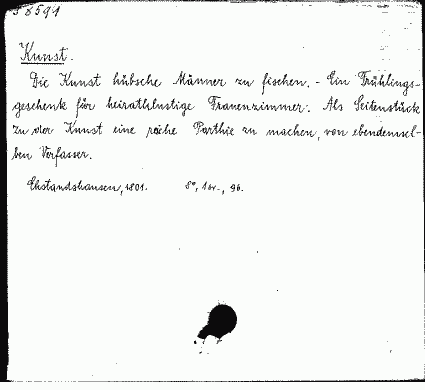 58591
Kunst.
Die Kunst hübsche Männer zu fischen. - Ein Frühlings-
geschenk für heirathslustige Frauenzimmer. Als Seitenstück
zu der Kunst eine reiche Parthie zu machen, von ebendemsel-
ben Verfasser.
Ehstandshausen, 1801. 8°, 96.